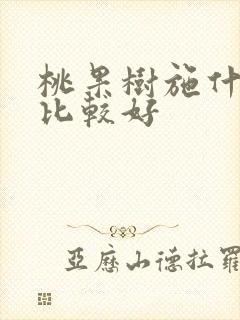 桃果樹施什
比較好
亞歷山德拉羅